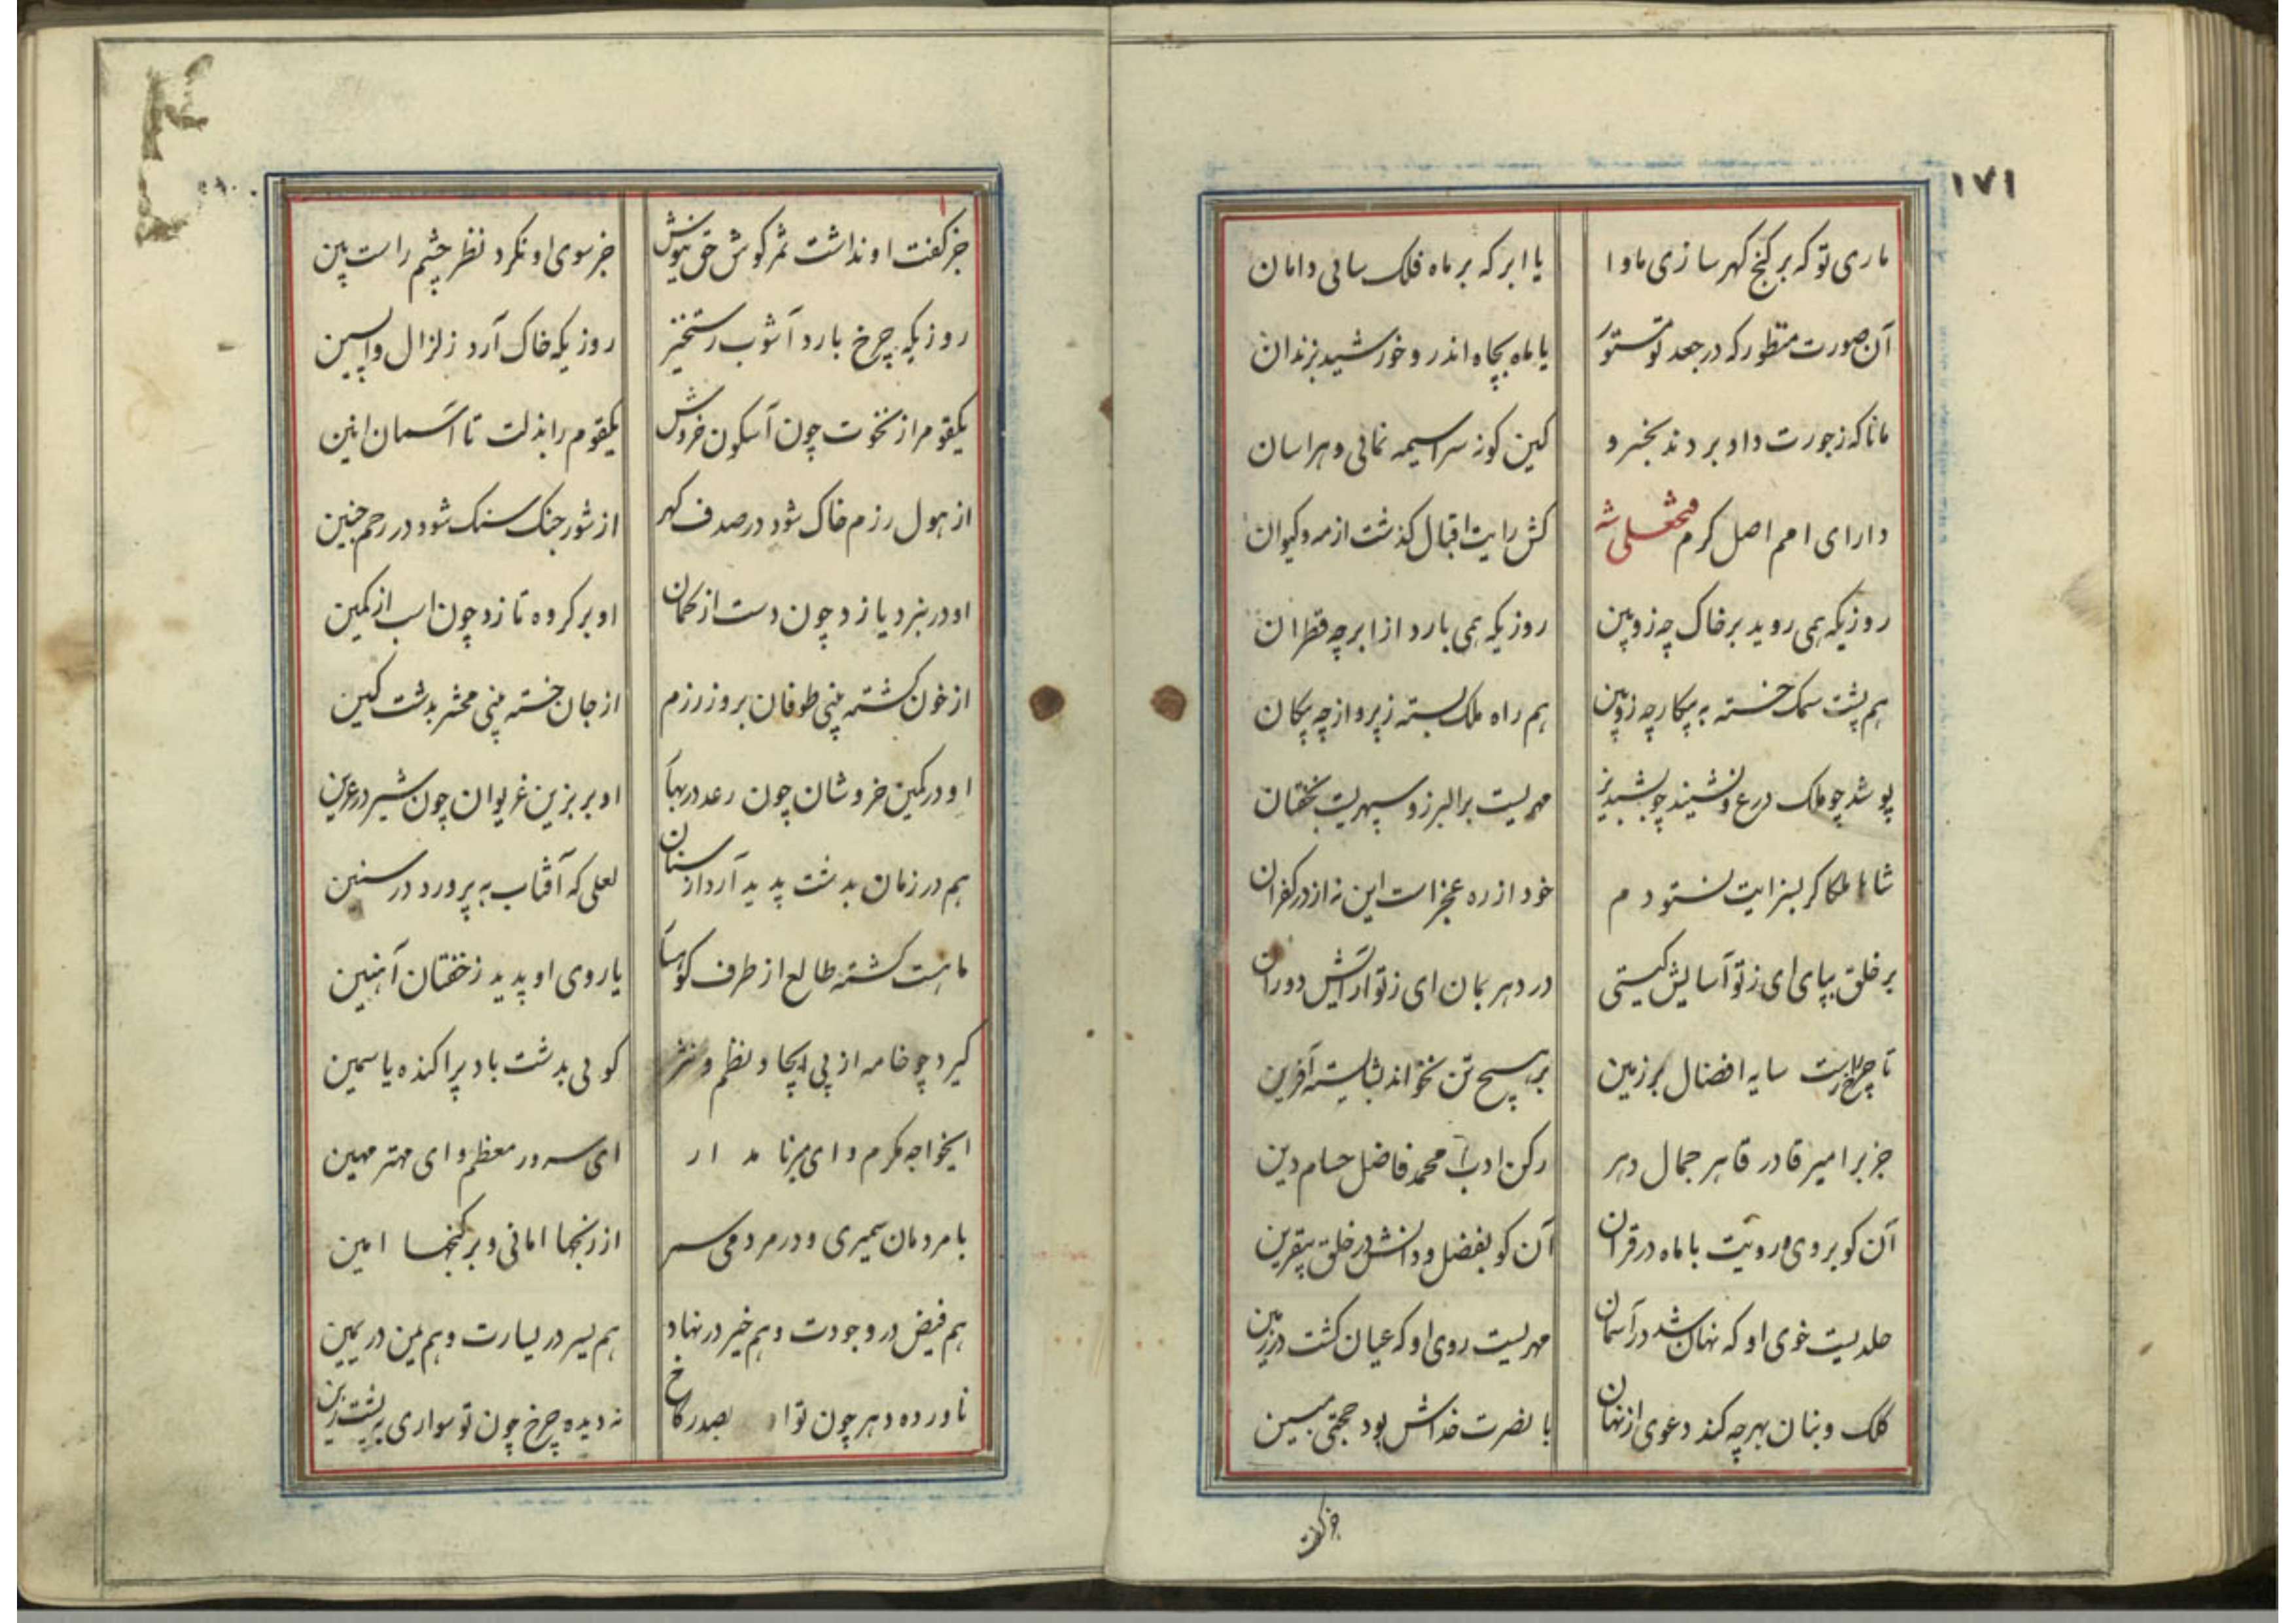 ۱۷۱
ماری تو که بر کنج کهر سازی ماوا یا ابر که بر ماه فلک سائی دامان
آن صورت منظور که در جعد تو مستور یا ماه بچاه اندر و خورشید بزندان
مانا که ز جورت داو بردند بخسرو کین کونه سراسیمه نمائی و هراسان
دارای امم اصل کرم فتحعلی شه کش رایت اقبال کذشت از مه و کیوان
روزیکه همی روید بر خاک چه زوبین روزیکه همی بارد از ابر چه قطران
هم پشت سمک خسته به پیکار چه زوبین هم راه ملک بسته ز پرواز چه پیکان
پوشد چو ملک درع و نشیند چو بشبدیز مهریست بر البرز و سپهریست بخفتان
شاها ملکا کر بسزایت نستودم خود از ره عجز است این نه از در کفران
بر خلق بپای ای ز تو آسایش کیتی در دهر بمان ای ز تو آرایش دوران
تا چرخ راست سایه افضال بر زمین بر هیچ تن نخواند بشایسته آفرین
جز بر امیر قادر قاهر جمال دهر رکن ادب محمد فاضل حسام دین
آن کو بروی و رویت با ماه در قران آن کو بفضل و دانش در خلق بیقرین
خلدیست خوی او که نهان شد در آسمان مهریست روی او که عیان کشت در زمین
کلک و بنان بهر چه کند دعوی از نهان با نصرت خداش بود حجتی مبین
جز کفت
جز کفت او نداشت ثمر کوش حق نیوش جز سوی او نکرد نظر چشم راست بین
روزیکه چرخ بارد آشوب رستخیز روزیکه خاک آرد زلزال واپسین
یکقوم را ز نخوت چون آبسکون خروش یکقوم را بذلت تا آسمان انین
از هول رزم خاک شود در صدف کهر از شور جنک سنک شود در رحم جنین
او در نبرد یازد چون دست از کمان او بر کروه تازد چون اسب از کمین
از خون کشته بینی طوفان بروز رزم از جان خسته بینی محشر بدشت کین
او در کمین خروشان چون رعد در بهار او بر بزین غریوان چون شیر در عرین
هم در زمان بدشت پدید آرد از سنان لعلی که آفتاب به پرورد در سنین
ماهست کشته طالع از طرف کوهسار یا روی او پدید ز خفتان آهنین
کیرد چو خامه از پی ایجاد نظم و نثر کوئی بدشت باد پراکنده یاسمین
ایخواجه مکرم و ای میر نامدار ای سرور معظم و ای مهتر مهین
با مردمان سمیری و در مردمی سمر از رنجها امانی و بر کنجها امین
هم فیض در وجودت و هم خیر در نهاد هم یسر در یسارت و هم یمن در یمین
ناورده دهر چون تو بصدر کاخ نه دیده چرخ چون تو سواری بپشت زین